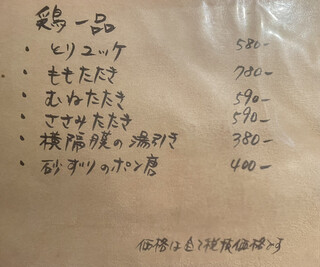 鶏一品
・とりユッケ 580-
・ももたたき 780-
・むねたたき 590-
・ささみたたき 590-
・横隔膜の湯引き 380-
・砂ずりのポン唐 400-
価格は全て税抜価格です